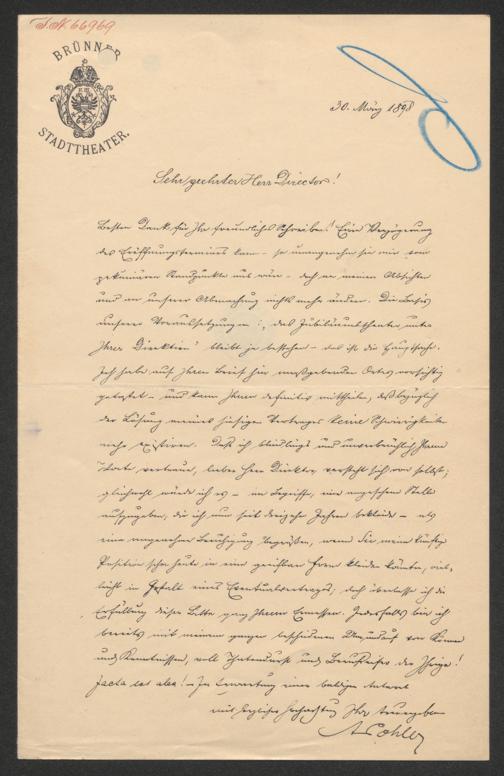 I.N. 66969
BRÜNNER
STADTTHEATER.
30. März 1898
Sehr geehrter Herr Director!
Besten Dank für Ihr freundliches Schreiben! Eine Verzögerung
des Eröffnungstermines kann – so unangenehm sie mir vom
pekuniären Standpunkte aus wäre – doch an meinen Absichten
und an unserer Abmachung nichts mehr ändern. Die Basis
unserer Voraussetzungen: „das Jubiläumstheater unter
Ihrer Direktion" bleibt ja bestehen – das ist die Hauptsache.
Ich habe auf Ihren Brief hier maßgebenden Ortes vorsichtig
getastet – und kann Ihnen definitiv mittheilen, daß bezüglich
der Lösung meines hiesigen Vertrages keine Schwierigkeiten
mehr existiren. Daß ich blindlings und unverbrüchlich Ihrem
Worte vertraue, lieber Herr Direktor, versteht sich von selbst;
gleichwohl würde ich es – im Begriffe, eine angesehene Stelle
aufzugeben, die ich nun seit dreizehn Jahren bekleide – als
eine angenehme Beruhigung begrüßen, wenn Sie meine künftige
Position schon heute in eine greifbare Form kleiden könnten, viel-
leicht in Gestalt eines Eventualvertrags; doch überlasse ich die
Erfüllung dieser Bitte ganz Ihrem Ermessen. Jedenfalls bin ich
bereits mit meinem ganzen bescheidenen Können
und Kenntnissen, voll Thatendurst und Berufseifer der Ihrige!
Jacta est alea! – In Erwartung einer baldigen Antwort
mit herzlicher Hochachtung Ihr